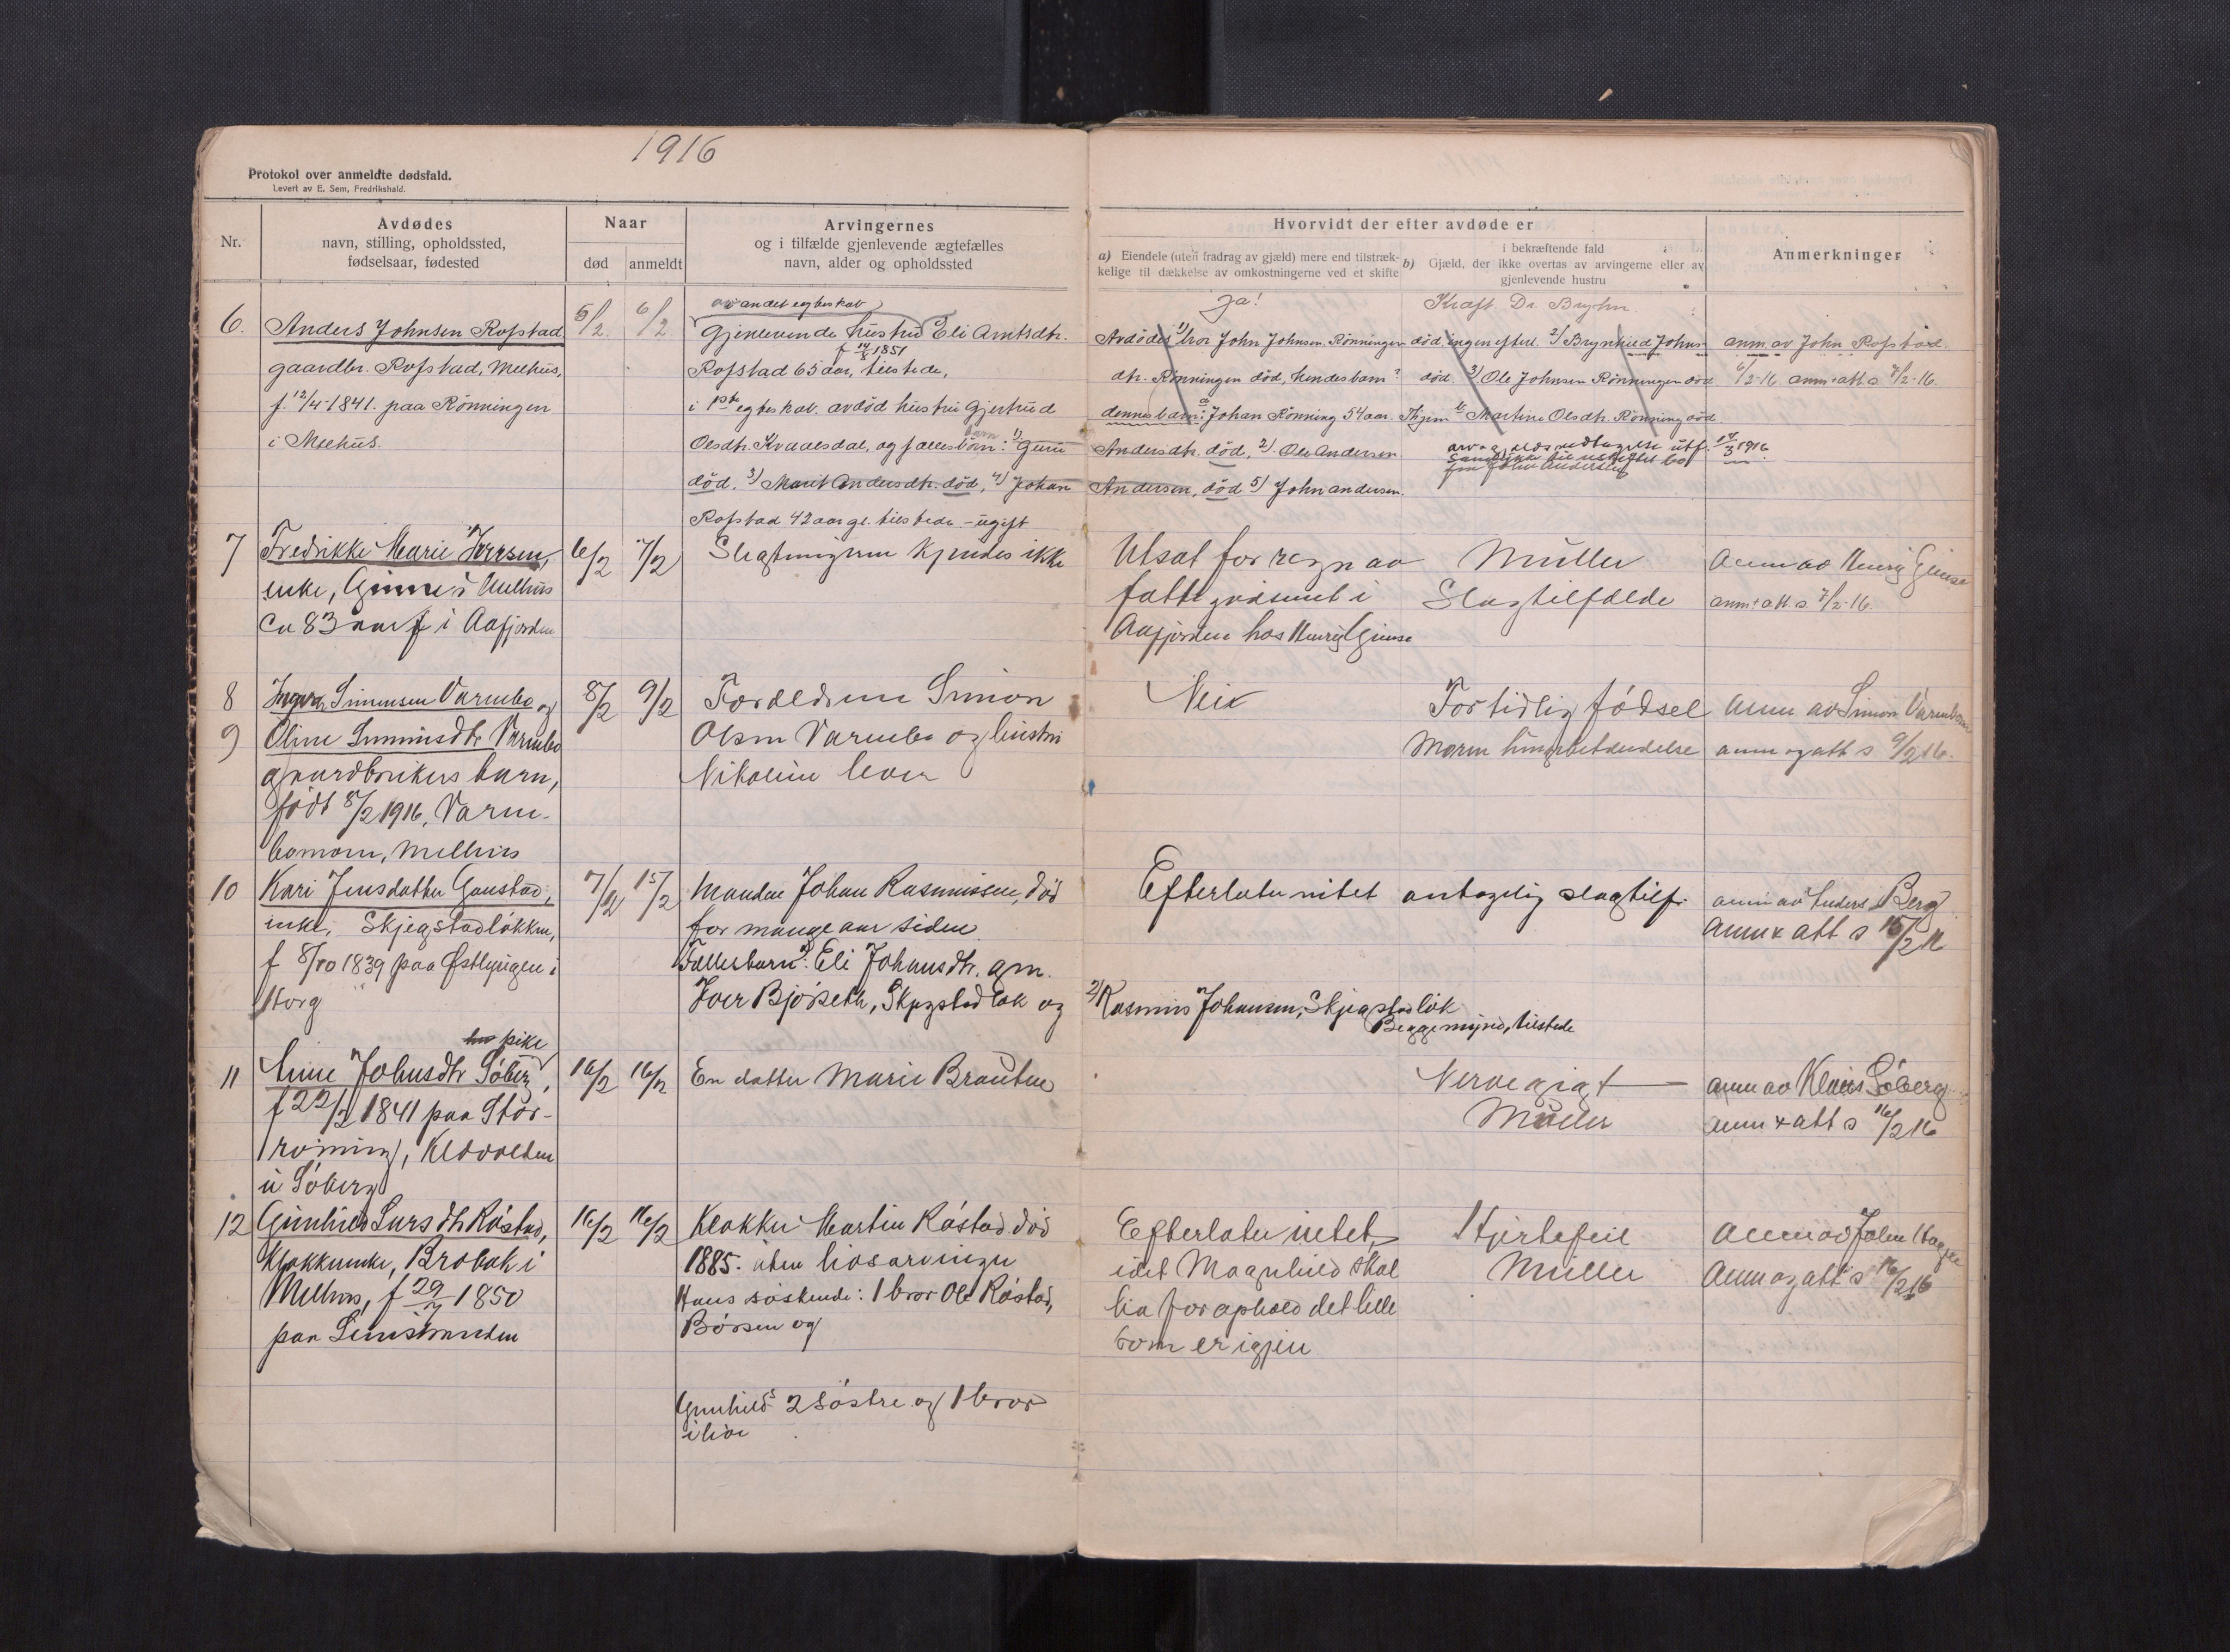 1916
Protokol over anmeldte dødsfald.
Levert av E. Sem, Fredrikshald.
Nr.
Avdødes
navn, stilling, opholdssted,
fødselsaar, fødested
Naar
død
anmeldt
Arvingernes
og i tilfælde gjenlevende ægtefælles
navn, alder og opholdssted
Hvorvidt der efter avdøde er
a) Eiendele (uten fradrag av gjæld) mere end tilstræk-
kelige til dækkelse av omkostningerne ved et skifte
i bekræftende fald
b) Gjæld, der ikke overtas av arvingerne eller av
gjenlevende hustru
Anmerkninger
6.
Anders Johnsen Rofstad
gaardbr. Rofstad, Melhus,
f. 12/4-1841. paa Rönningen
i Melhus.
5/2
6/2
av andet egteskab
Gjenlevende hustru Eli Arntsdtr.
f 14/8 1851
Rofstad 65 aar, tilstede,
i 1ste egteskab. avdöd hustru Gjertrud
Olsdtr. Kvaalsdal, og fællesbörn: 1) Guru
död. 3) Marit Andersdtr. död, 4) Johan
Rofstad 42 aar gl. tilstede - ugift
Ja!
Avdödes 1) bror John Johnsen Rönningen
dtr. Rönningen död, hendes barn?
dennes barn: a Johan Rönning 54 aar.
Andersdtr. död, 2) Ole Andersen
Andersen, död 5) John andersen.
Kræft Dr. Bryhn.
död, ingen efterl. 2) Brynhild Johns-
död 3) Ole Johnsen Rönningen död
Thjem b Martine Olsdtr. Rönning död
utf. 14/3 1916
John Andersen
anm. av John Rofstad.
6/2-16 anm+att s 7/2-16.
7
Fredrikke Marie Iversen,
enke, Gimse i Melhus
Ca 83 aar f i Aafjorden
6/2
7/2
Slegtningerne kjendes ikke
Utsat for regn av
fattigvæsenet i
Aafjorden hos Henrij Gimse
Müller
Slagtilfælde
Anm av Henrij Gimse
anm+att s 7/2-16.
8
Ingvar Simonsen Varmbo og
9
Oline Simonsdtr Varmbo
gaardbrukers barn,
födt 8/2 1916, Varm-
bomoen, Melhus
8/2
9/2
Forældrene Simon
Olsen Varmbo og hustru
Nikoline lever
Nei
Fortidlig födsel
anm av Simon Varmboen
anm og att s 9/2 16.
10
Kari Jensdatter Gaustad,
enke, Skjegstadløkken,
f 8/10 1839 paa Østlyngen i
Horg
7/2
15/2
Manden Johan Rasmussen, död
for mange aar siden
Fællesbarn: 1) Eli Johansdtr. gm.
Iver Bjørseth, Skjegstadløk og
Efterlater intet
2) Rasmus Johansen, Skjegstadløk
Begge myndige, tilstede
antagelig slagtilf.
anm av Anders Berg
Anm & att s 15/2 16
11
pike
Anne Johnsdtr Söberg,
f 22/2 1841 paa Stor-
röning, Kløvolden
u Söberg
16/2
16/2
En datter Marie Brauten
Nervegigt
Müller
anm av Klaus Söberg
anm + att s 16/2 16
12
Gunhild Larsdtr Råstad,
Klokkerenke, Brobak i
Melhus, f 29/ 1850
paa Leinstranden
16/2
16/2
Klokker Martin Råstad död
1885. uten livsarvinger
Hans söskende: 1 bror Ole Råstad,
Börsen og
Gunhilds 2 söstre og 1 bror
i live
Efterlater intet,
idet Magnhild skal
ha for ophold det lille
som er igjen
Hjertefeil
Müller
Anm av John Hagen
Anm og att s 16/2 16